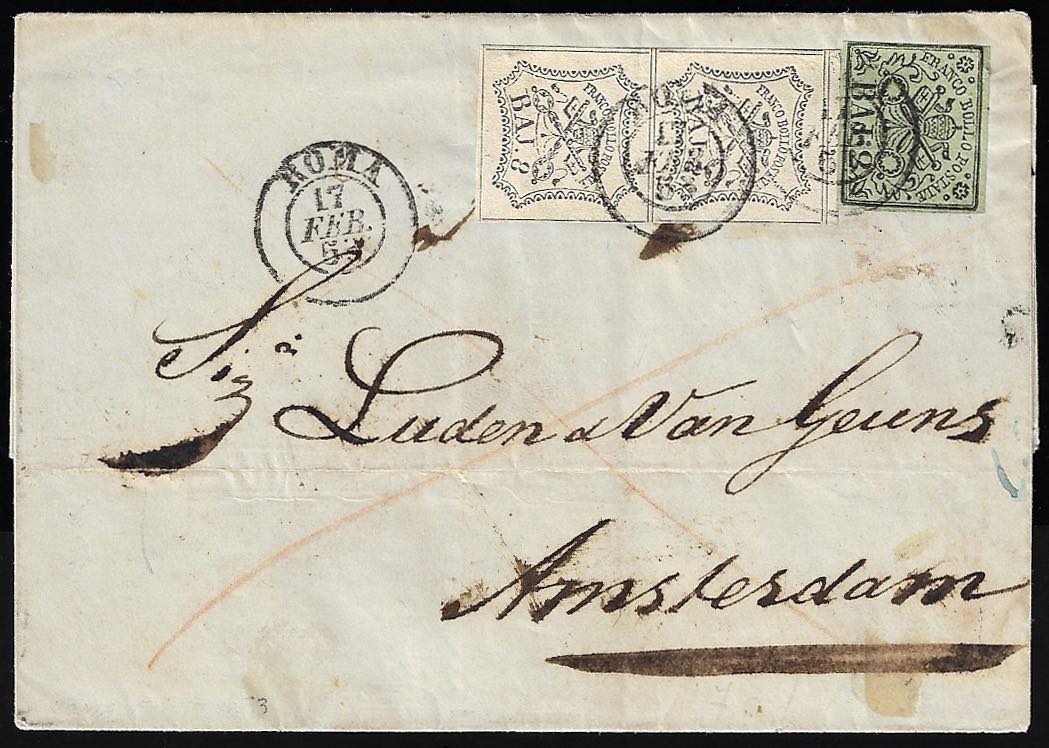 FRANCO BOLLO PO
BAJ. 8
FRANCO BOLLO POSTALE
BAJ. 8
FRANCO BOLLO POSTALE
BAJ. 2
ROMA
17
FEB.
Sigri
Luden & Van Geuns
Amsterdam
3